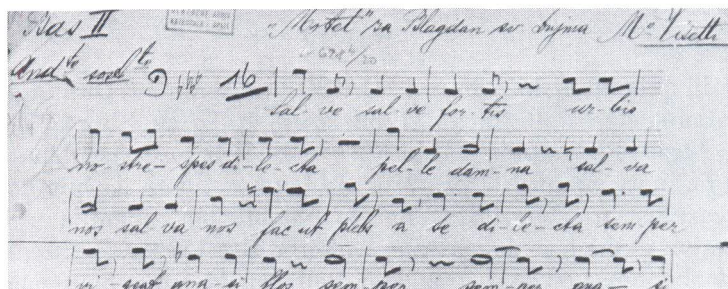 Bas II "Motet" za Blagdan sv. Dujma Mo Visetti
And.te sost.to 16
sal-ve sal-ve for-tis ur-bis
no-strae-spes di-le-cta pel-le dam-na sal-va
nos sal va nos fac ut plebs a te di-le-cta sem-per
sem-per sem-per